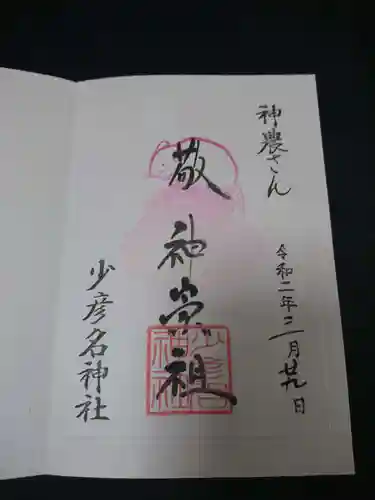 神農さん
令和二年三月廿九日
敬神崇祖
少彦名神社